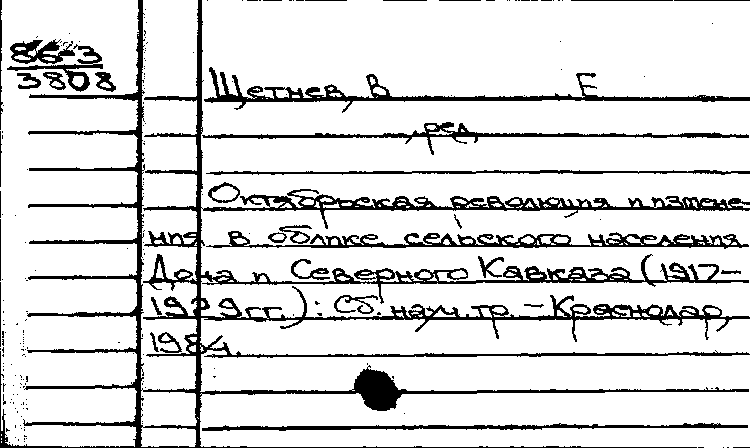 86-3
3808
Щетнев, В Е
, ред,
Октябрьская революция и измене-
ния в облике сельского населения
Дона и Северного Кавказа (1917-
1929гг.): Сб. науч. тр. - Краснодар,
1984.